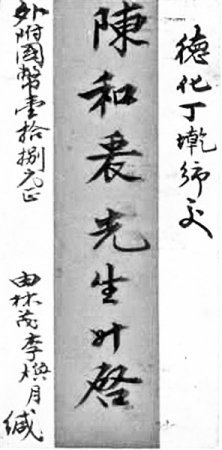 德化丁墘師交
陳和裊先生升啓
外附國幣壹拾捌元正
由林茂李樹月緘